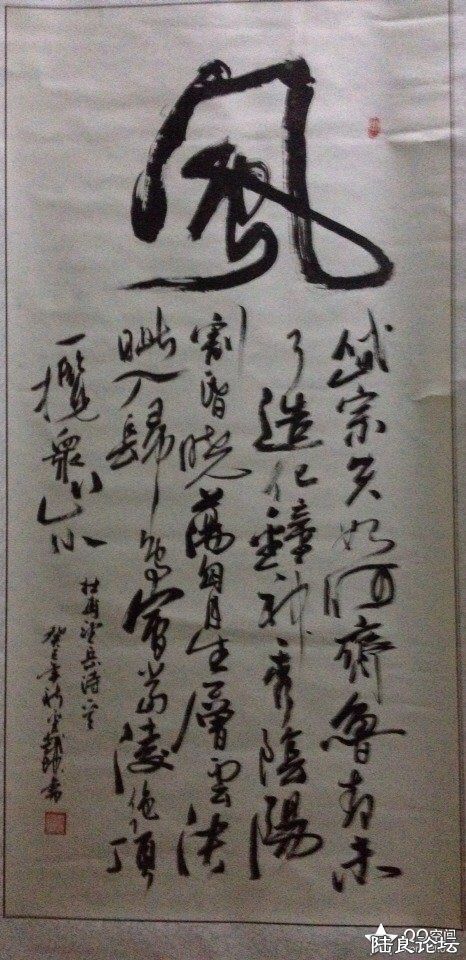 風
岱宗夫如何齊魯青未
了造化鐘神秀陰陽
割昏曉蕩胸生層雲決
眦入歸鳥會當凌絕頂
一攬衆山小
杜甫望岳詩一首
癸巳年秋書
QQ空间
陆良论坛